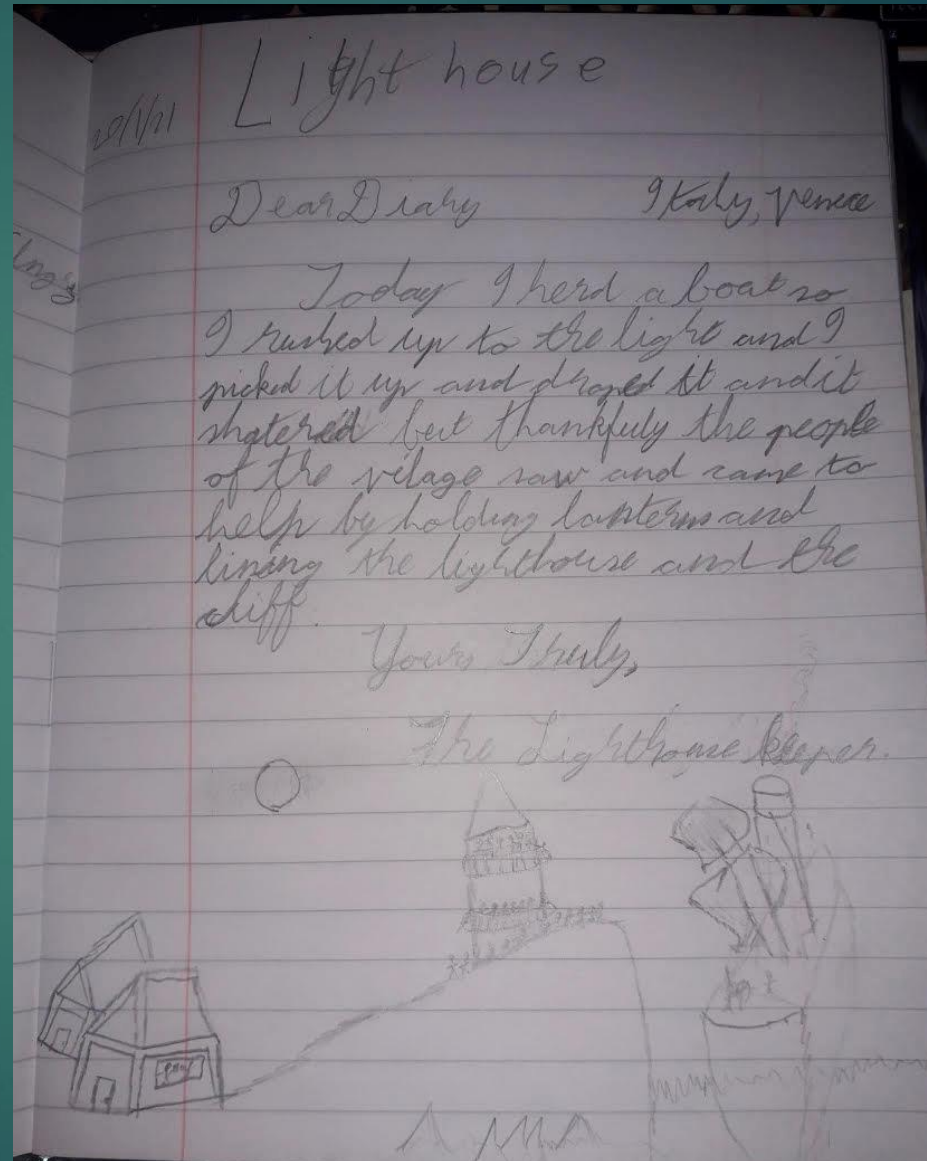 Light house
20/1/21
Dear Diary Italy, Venice
Today I herd a boat so
I rushed up to the light and I
picked it up and droped it and it
shatered but thankfuly the people
of the vilage saw and came to
help by holding lanterns and
lining the lighthouse and the
cliff.
Yours Truly,
The Lighthouse keeper.